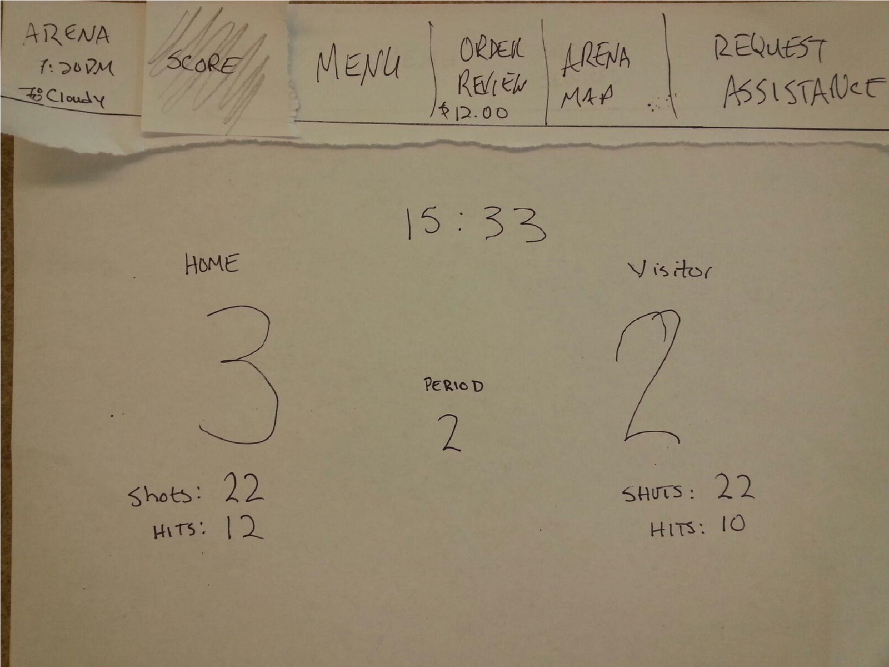 ARENA
7:20PM
Cloudy
SCORE
MENU
ORDER
REVIEW
$12.00
ARENA
MAP
REQUEST
ASSISTANCE
15:33
HOME
Visitor
3
2
PERIOD
2
Shots: 22
HITS: 12
SHOTS: 22
HITS: 10